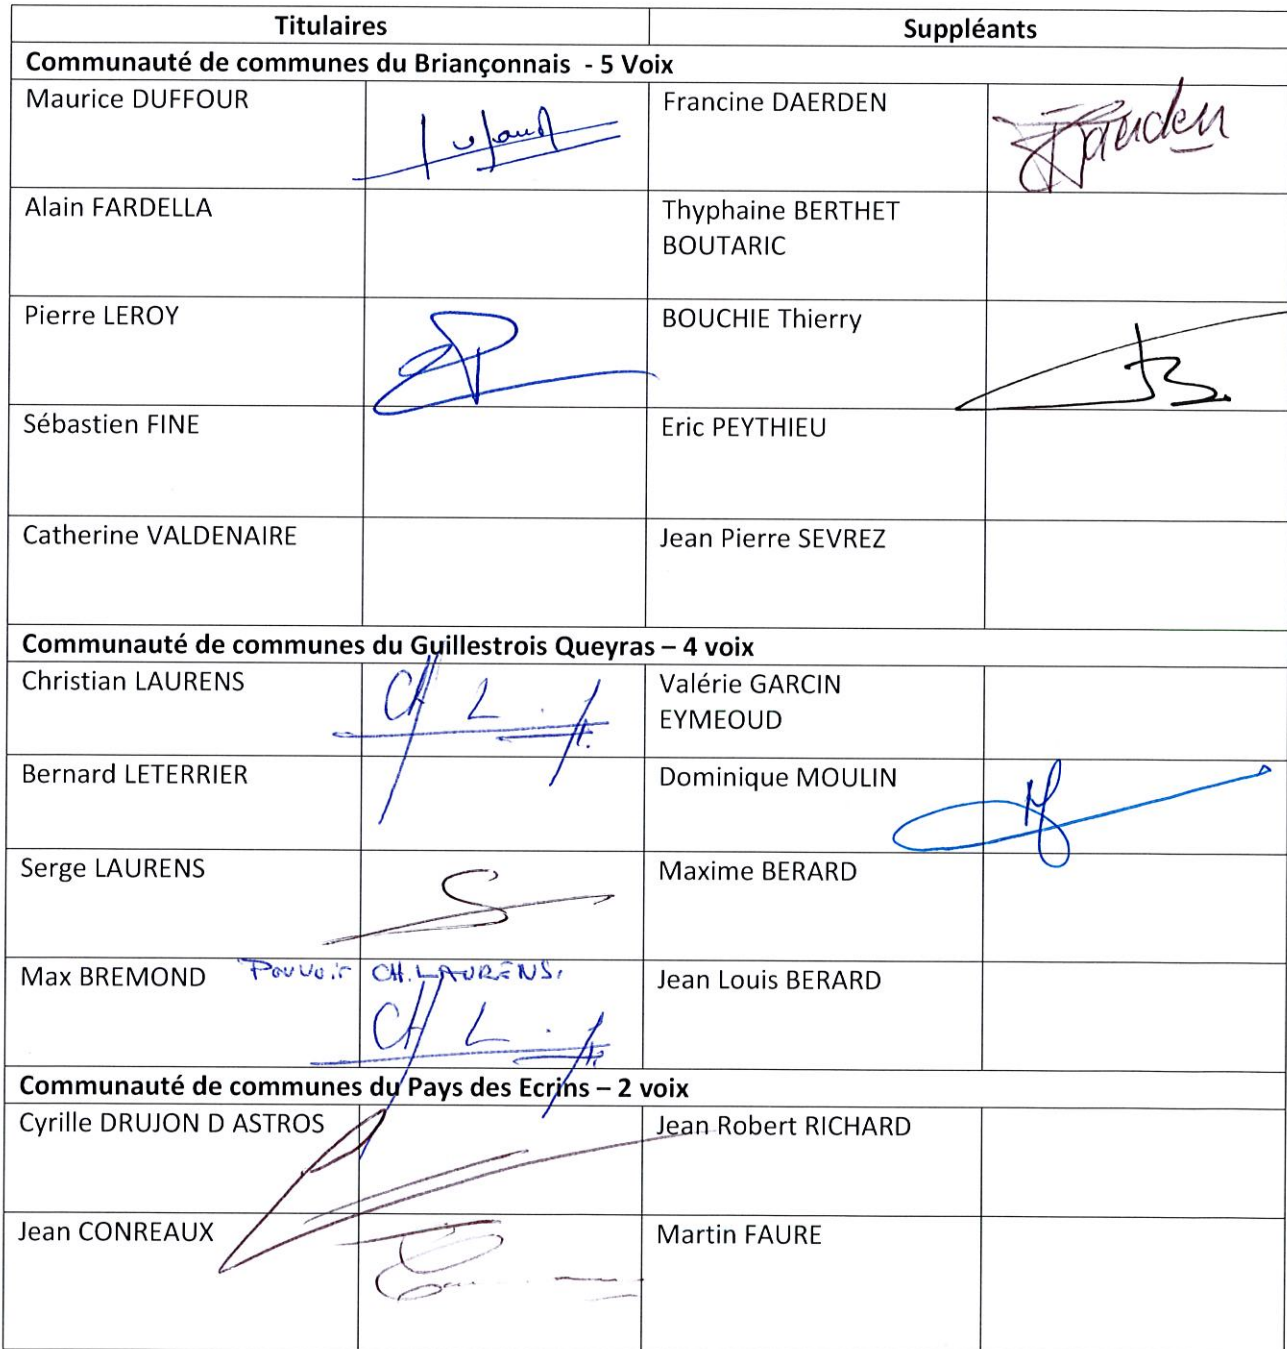 Titulaires Suppléants
Communauté de communes du Briançonnais - 5 Voix
Maurice DUFFOUR Francine DAERDEN
Alain FARDELLA Thyphaine BERTHET
BOUTARIC
Pierre LEROY BOUCHIE Thierry
Sébastien FINE Eric PEYTHIEU
Catherine VALDENAIRE Jean Pierre SEVREZ
Communauté de communes du Guillestrois Queyras – 4 voix
Christian LAURENS CH L Valérie GARCIN
EYMEOUD
Bernard LETERRIER Dominique MOULIN
Serge LAURENS Maxime BERARD
Max BREMOND Pouvoir CH. LAURENS. Jean Louis BERARD
CH L
Communauté de communes du Pays des Ecrins – 2 voix
Cyrille DRUJON D ASTROS Jean Robert RICHARD
Jean CONREAUX Martin FAURE